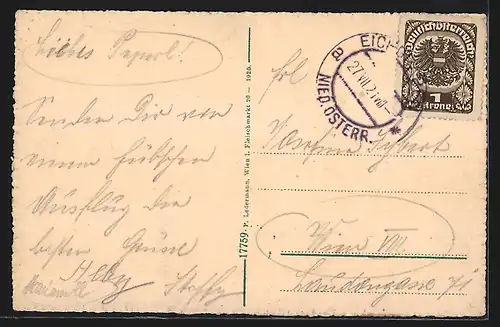 Liebes Peperl!
Senden Dir von
einem hübschen
Ausflug die
besten Grüsse
Steffy
17759 P. Ledermann, Wien I. Fleischmarkt 20 — 1920.
Deutschösterreich
1
Krone
EICH
27.VII.21
a NIED.ÖSTERR. *
Frl
Wien VIII
Laudongasse 71